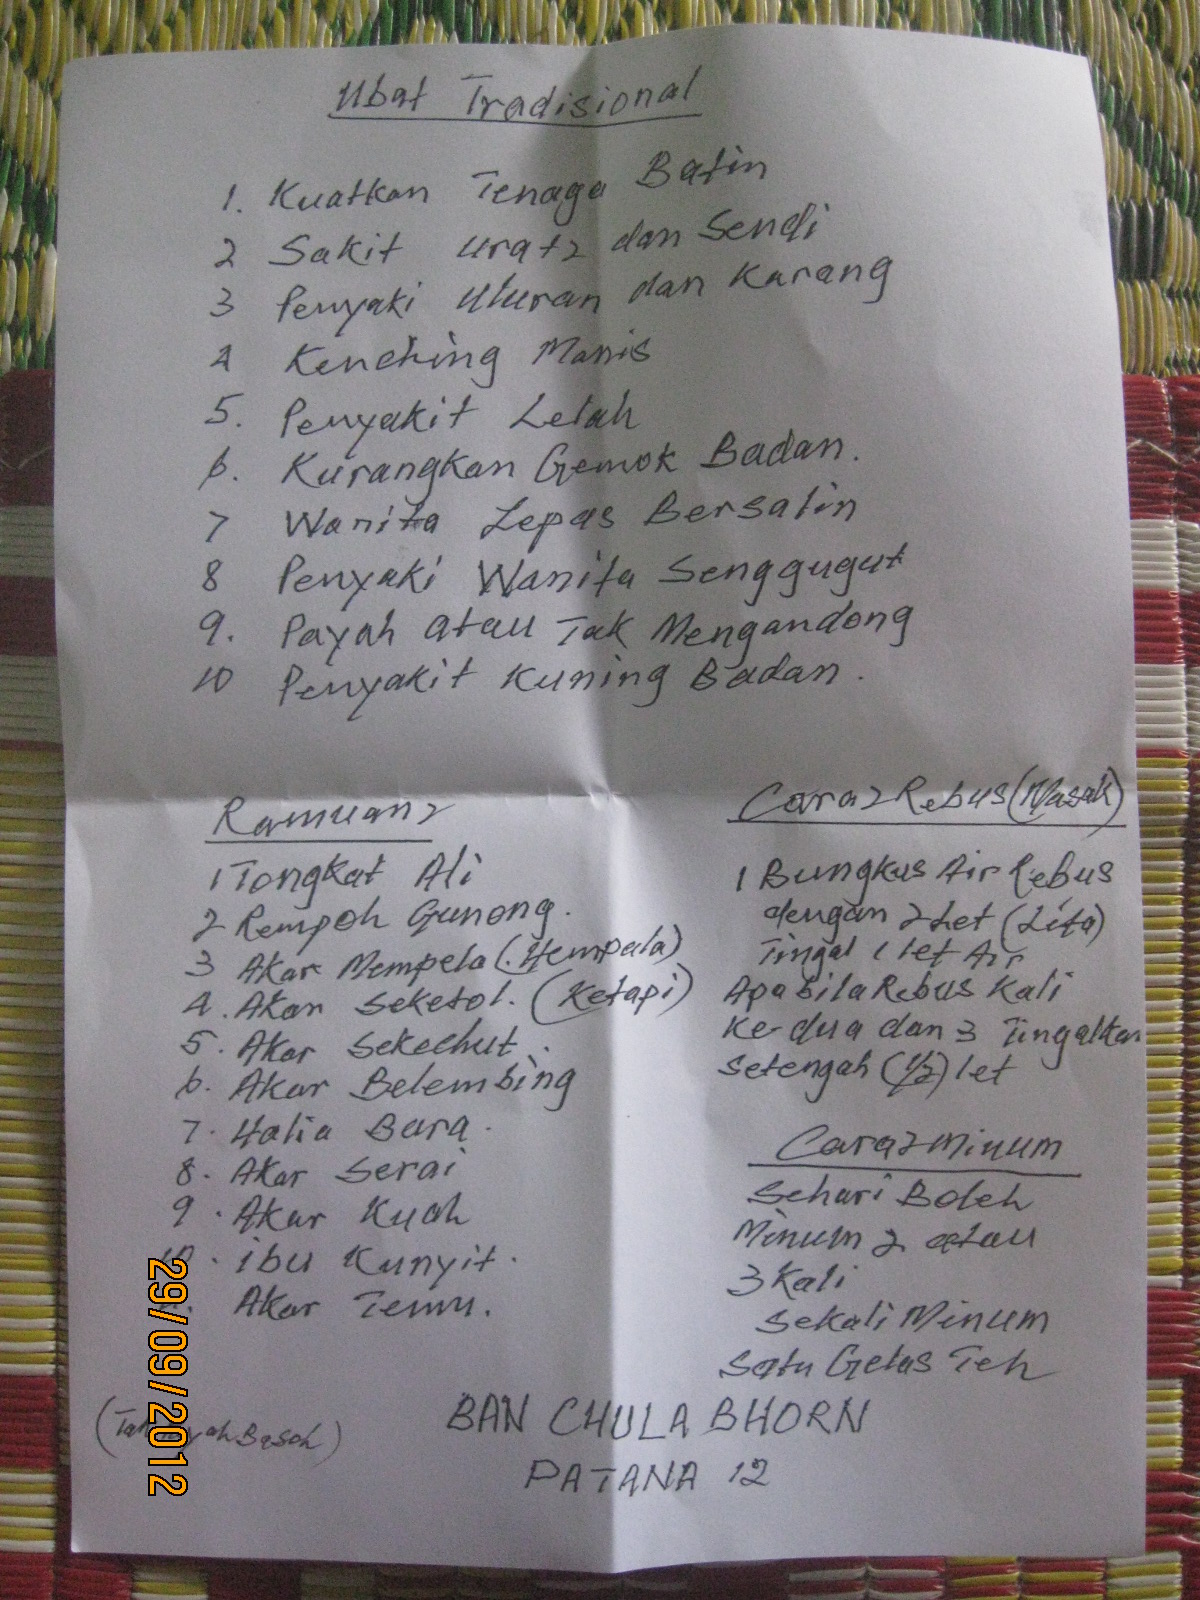 Ubat Tradisional
1. Kuatkan Tenaga Batin
2 Sakit urat2 dan Sendi
3 Penyaki Uturan dan Karang
4 Kenching Manis
5. Penyakit Lelah
6. Kurangkan Gemok Badan.
7 Wanita Lepas Bersalin
8 Penyaki Wanita Senggugut
9. Payah atau Tak Mengandong
10 Penyakit Kuning Badan.
Ramuan2
1 Tongkat Ali
2 Rempoh Gunong.
3 Akar Mempela (Hempala)
4. Akar Seketol. (Ketapi)
5. Akar Sekechut.
6. Akar Belembing
7. Halia Bara.
8. Akar Serai
9. Akar Kuah
10. ibu Kunyit.
Akar Temu.
Cara2 Rebus (Masak)
1 Bungkus Air Rebus
dengan 2 Let (Lita)
Tingal 1 let Air
Apabila Rebus Kali
Ke-dua dan 3 Tingalkan
Setengah (1/2) let
Cara2 Minum
Sehari Boleh
Minum 2 atau
3 Kali
Sekali Minum
Satu Gelas Teh
Basoh)
BAN CHULABHORN
PATANA 12
29/09/2012